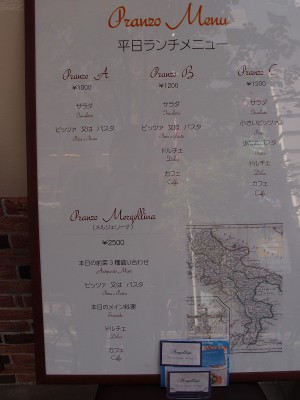 Pranzo Menu
平日ランチメニュー
Pranzo A
¥1000
サラダ
Insalata
ピッツァ 又は パスタ
Pizza o Pasta
Pranzo B
¥1200
サラダ
Insalata
ピッツァ 又は パスタ
Pizza o Pasta
ドルチェ
Dolce
カフェ
Caffè
Pranzo C
サラダ
Insalata
小さいピッツァ
パスタ
ドルチェ
Dolce
カフェ
Caffè
Pranzo Mergellina
(メルジェリーナ)
¥2500
本日の前菜3種盛り合わせ
Antipasto Misto
ピッツァ 又は パスタ
Pizza o Pasta
本日のメイン料理
Secondo
ドルチェ
Dolce
カフェ
Caffè